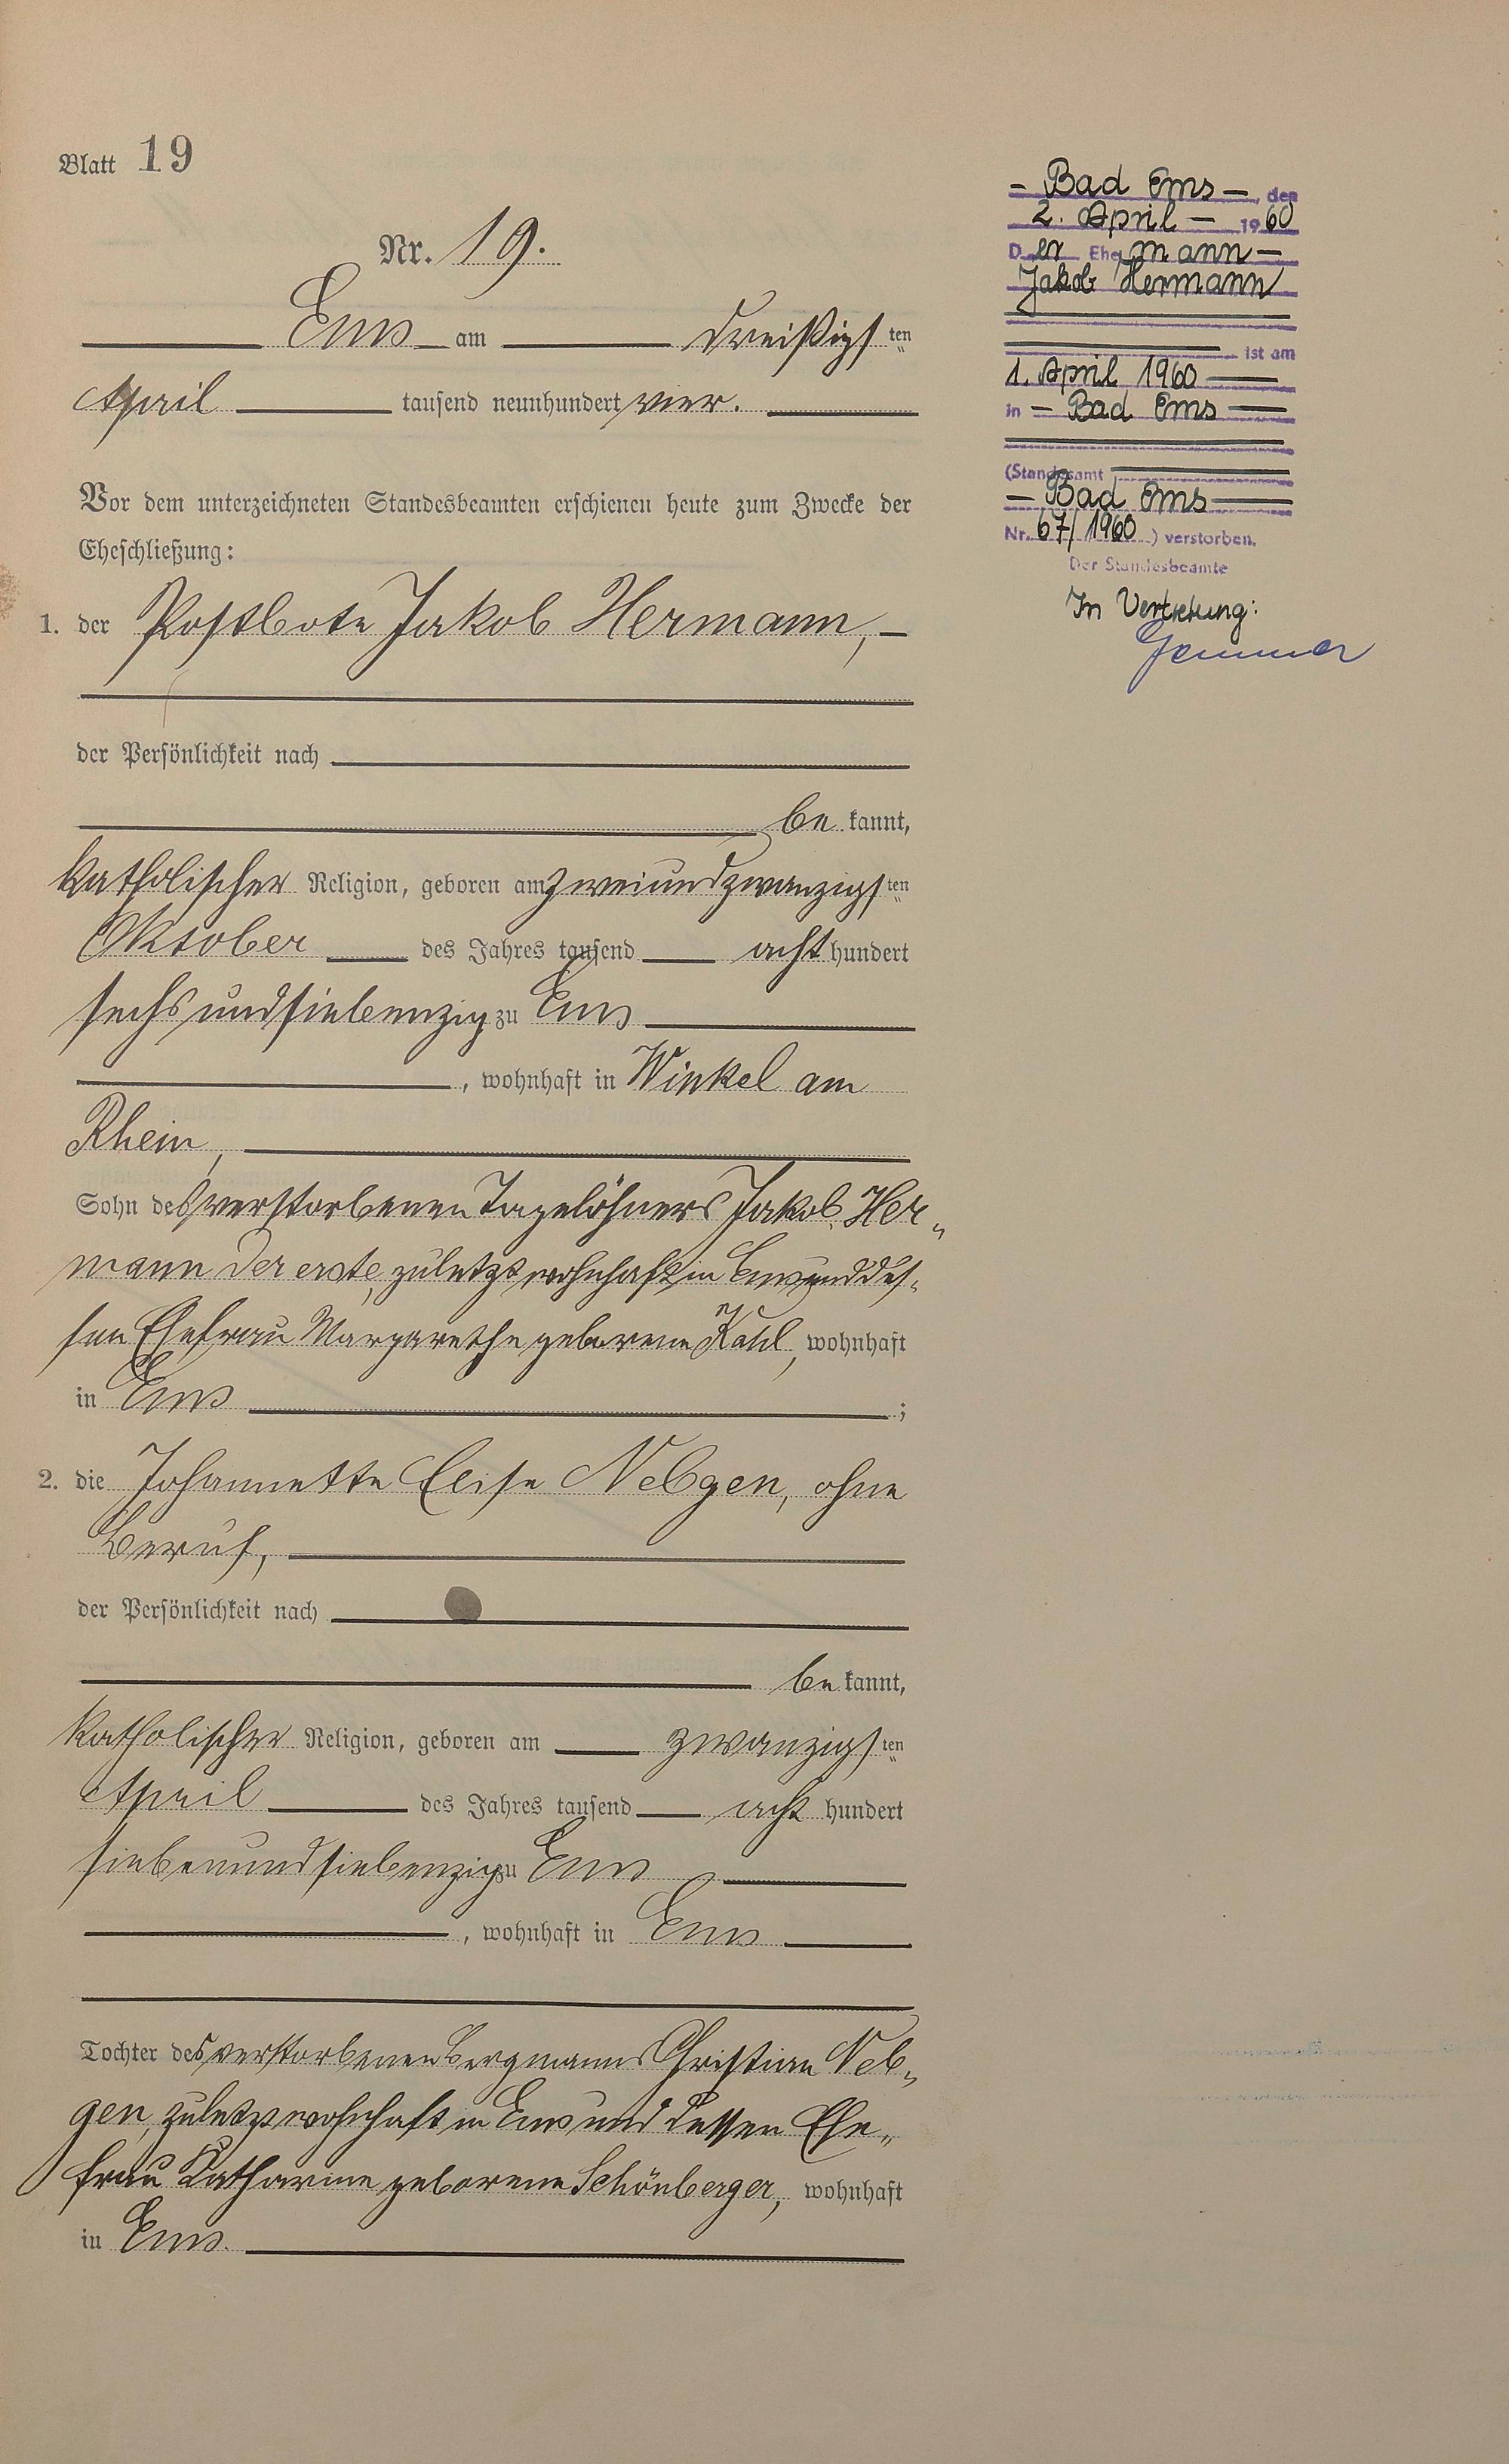 Blatt 19
Nr. 19.
Ems am dreißigsten
April tausend neunhundert vier.
Vor dem unterzeichneten Standesbeamten erschienen heute zum Zwecke der
Eheschließung:
1. der Postbote Jakob Hermann,
der Persönlichkeit nach
be kannt,
katholischer Religion, geboren am zweiundzwanzigsten
Oktober des Jahres tausend acht hundert
sechsundsiebenzig zu Ems
, wohnhaft in Winkel am
Rhein,
Sohn des verstorbenen Tagelöhners Jakob Her„
mann der erste, zuletzt wohnhaft in Ems und des„
sen Ehefrau Margarethe geborene, wohnhaft
in Ems ;
2. die Johannette Elise Nebgen, ohne
Beruf,
der Persönlichkeit nach
be kannt,
katholischer Religion, geboren am zwanzigsten
April des Jahres tausend acht hundert
siebenundsiebenzig zu Ems
, wohnhaft in Ems
Tochter des verstorbenen Bergmanns Christian Neb„
gen, zuletzt wohnhaft in Ems und dessen Ehe„
frau Katharine geborene Schönberger, wohnhaft
in Ems.
- Bad Ems -, den
2. April - 1960
Der Ehemann -
Jakob Hermann
ist am
1. April 1960
in - Bad Ems
(Standesamt
- Bad Ems
Nr. 67/1960) verstorben.
Der Standesbeamte
In Vertretung: